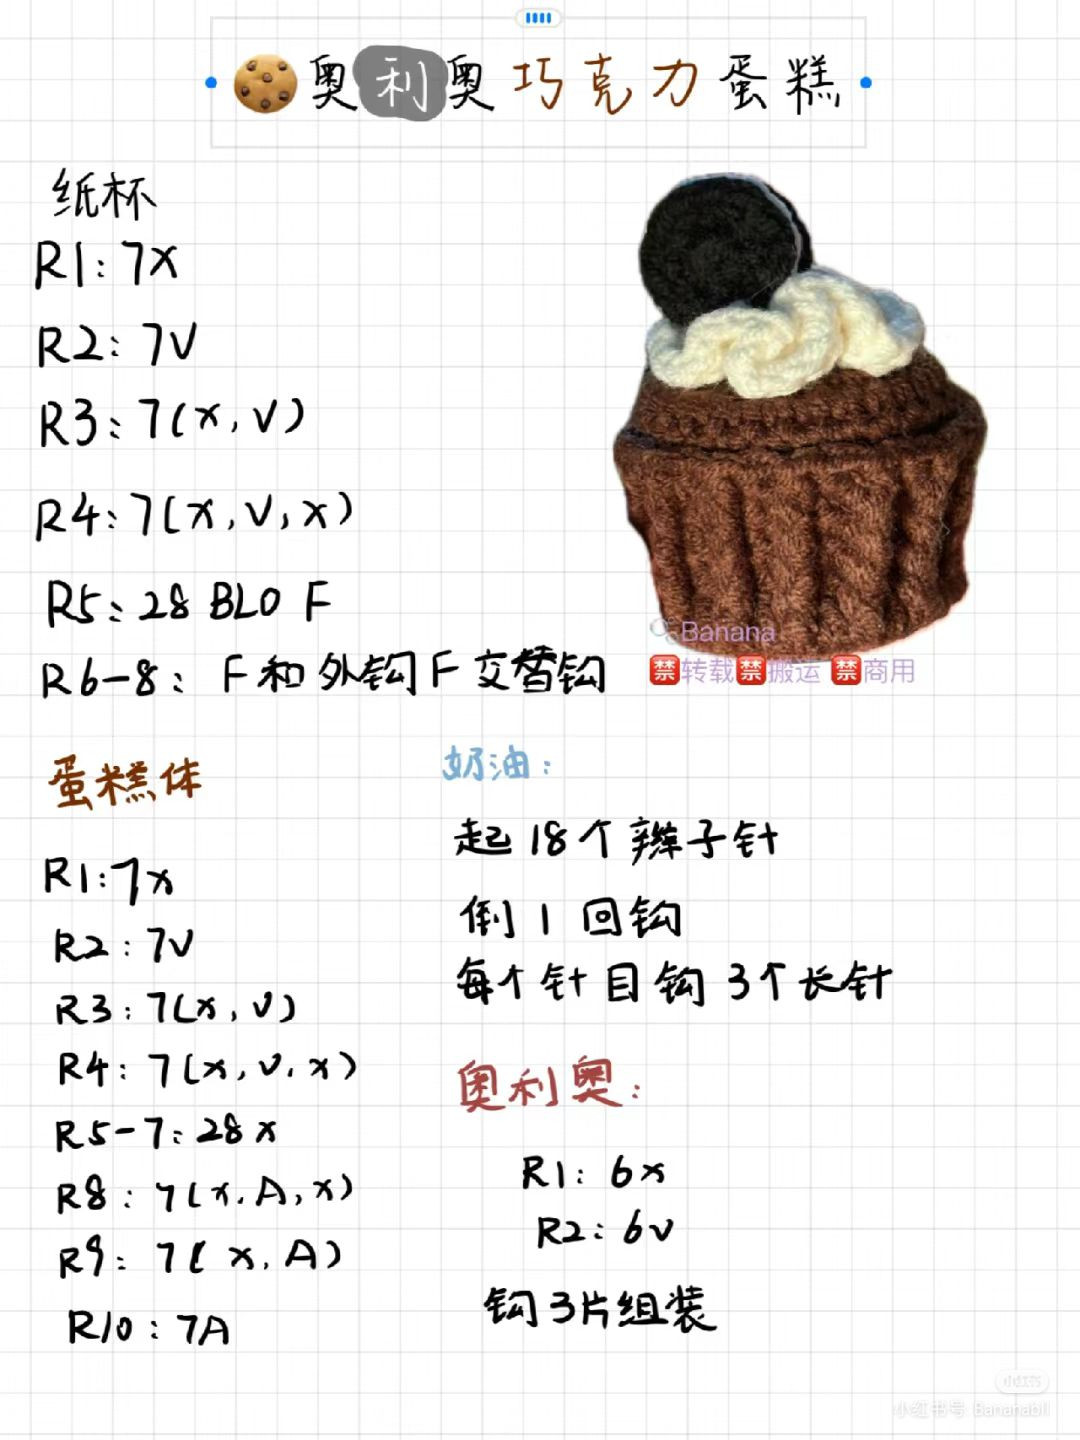 奥利奥巧克力蛋糕
纸杯
R1:7x
R2:7V
R3:7(x,V)
R4:7(x,V,x)
R5:28 BLO F
R6-8:F和外钩F交替钩
Banana
禁转载禁搬运 禁商用
蛋糕体
R1:7x
R2:7V
R3:7(x,V)
R4:7(x,V,x)
R5-7:28x
R8:7(x.A,x)
R9:7(x,A)
R10:7A
奶油:
起18个辫子针
倒1回钩
每个针目钩3个长针
奥利奥:
R1:6x
R2:6V
钩3片组装
小红书
小红书号:Bananabll